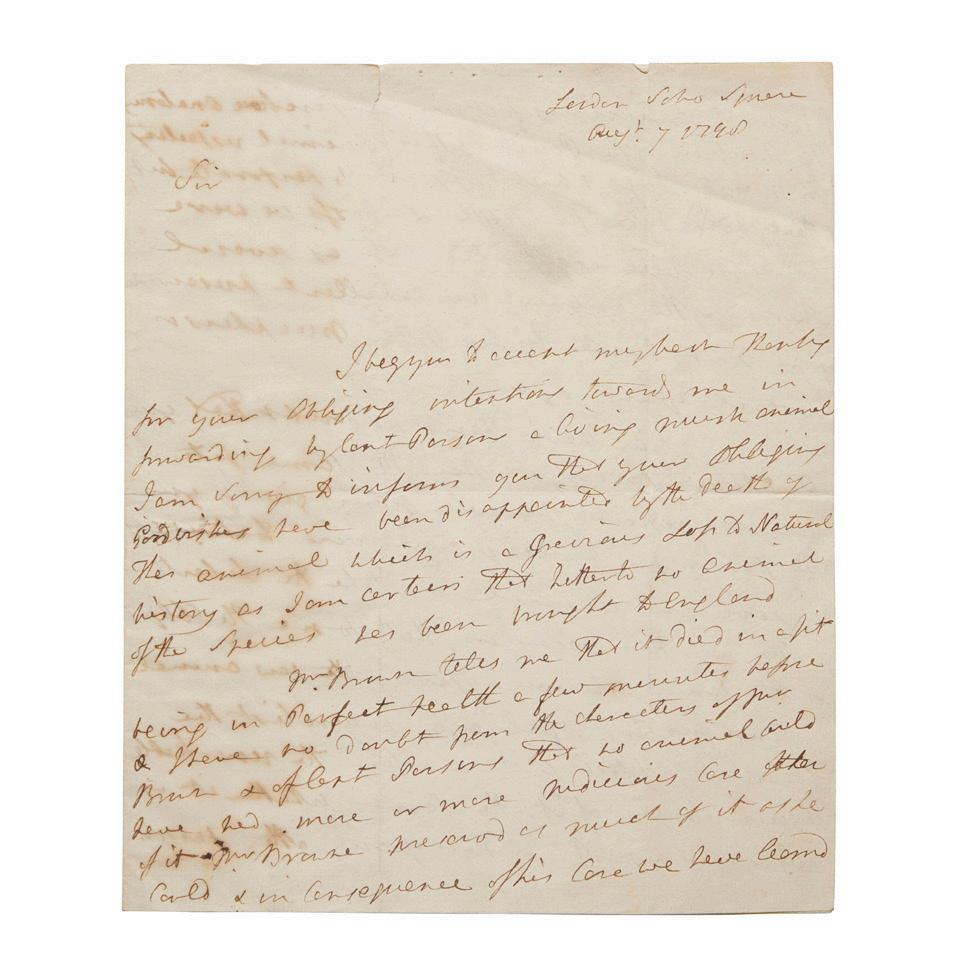 London Soho Square
Augt. 7 1798
Sir
I beg you to accept my best Thanks
for your Obliging intentions towards me in
forwarding by Capt Parson a living musk animal
I am Sorry to inform you that your Obliging
Good wishes have been disappointed by the death of
the animal which is a Greivious Loss to Natural
history as I am certain that hitherto no animal
of the Species has been brought to England
Mr. tells me that it died in a fit
being in Perfect health a few minutes before
& I have no doubt from the characters of Mr
& of Capt Parsons that no animal could
have had more or more Judicious Care
of it Mr preservd as much of it as he
Could & in Consequence of his Care we have learnd